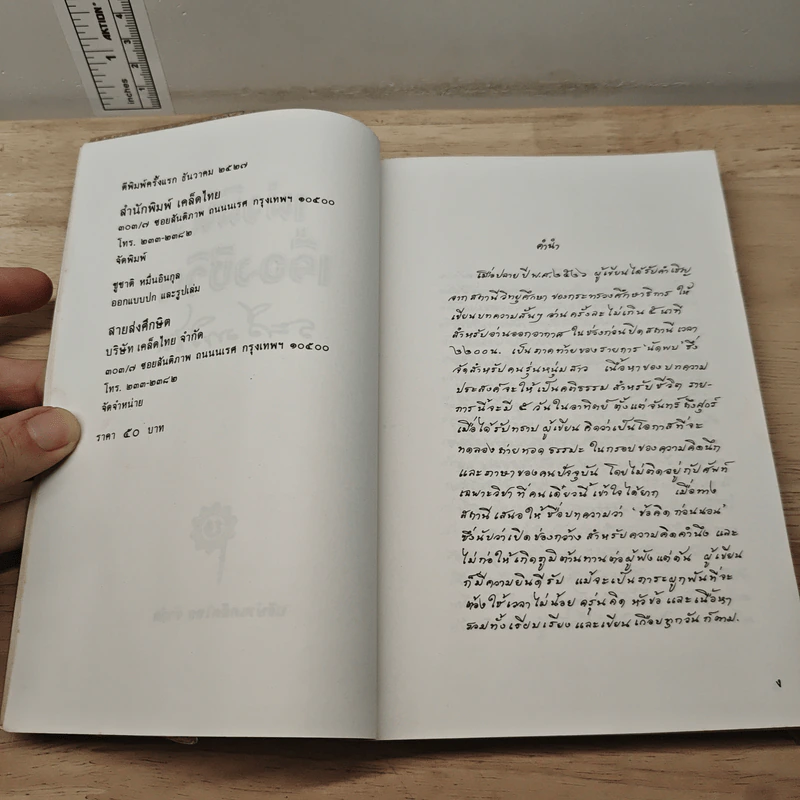 ตีพิมพ์ครั้งแรก ธันวาคม ๒๕๒๗
สำนักพิมพ์ เคล็ดไทย
๓๐๓/๗ ซอยสันติภาพ ถนนนเรศ กรุงเทพฯ ๑๐๕๐๐
โทร. ๒๓๓-๒๓๘๒
จัดพิมพ์
ชูชาติ หมื่นอินกุล
ออกแบบปก และรูปเล่ม
สายส่งศึกษิต
บริษัท เคล็ดไทย จำกัด
๓๐๓/๗ ซอยสันติภาพ ถนนนเรศ กรุงเทพฯ ๑๐๕๐๐
โทร. ๒๓๓-๒๓๘๒
จัดจำหน่าย
ราคา ๕๐ บาท
คำนำ
เมื่อปลายปี พ.ศ.๒๕๒๖ ผู้เขียนได้รับคำเชิญ
จากสถานีวิทยุศึกษา ของกระทรวงศึกษาธิการ ให้
เขียนบทความสั้นๆ อ่านครั้งละไม่เกิน ๕ นาที
สำหรับอ่านออกอากาศ ในช่วงก่อนปิดสถานี เวลา
๒๒๐๐น. เป็นภาคท้ายของรายการ "นัดพบ" ซึ่ง
จัดสำหรับคนรุ่นหนุ่มสาว เนื้อหาของบทความ
ประสงค์จะให้เป็นคติธรรม สำหรับชีวิต ราย-
การนี้จะมี ๕ วันในอาทิตย์ ตั้งแต่จันทร์ถึงศุกร์
เมื่อได้รับทราบ ผู้เขียน คิดว่าเป็นโอกาสที่จะ
ทดลองถ่ายทอดธรรมะ ในกรอบของความคิดนึก
และภาษาของคนปัจจุบัน โดยไม่ติดอยู่กับศัพท์
เฉพาะวิชา ที่คนเดี๋ยวนี้ เข้าใจได้ยาก เมื่อทาง
สถานีเสนอให้ชื่อบทความว่า "ข้อคิดก่อนนอน"
ซึ่งนับว่าเปิดช่องกว้าง สำหรับความคิดคำนึง และ
ไม่ก่อให้เกิดภูมิต้านทานต่อผู้ฟังแต่ต้น ผู้เขียน
ก็มีความยินดีรับ แม้จะเป็นภาระผูกพันที่จะ
ต้องใช้เวลาไม่น้อย ครุ่นคิด หัวข้อ และเนื้อหา
รวมทั้งเรียบเรียง และเขียน เกือบทุกวันก็ตาม.
AKTION
inches
1
2
3
4